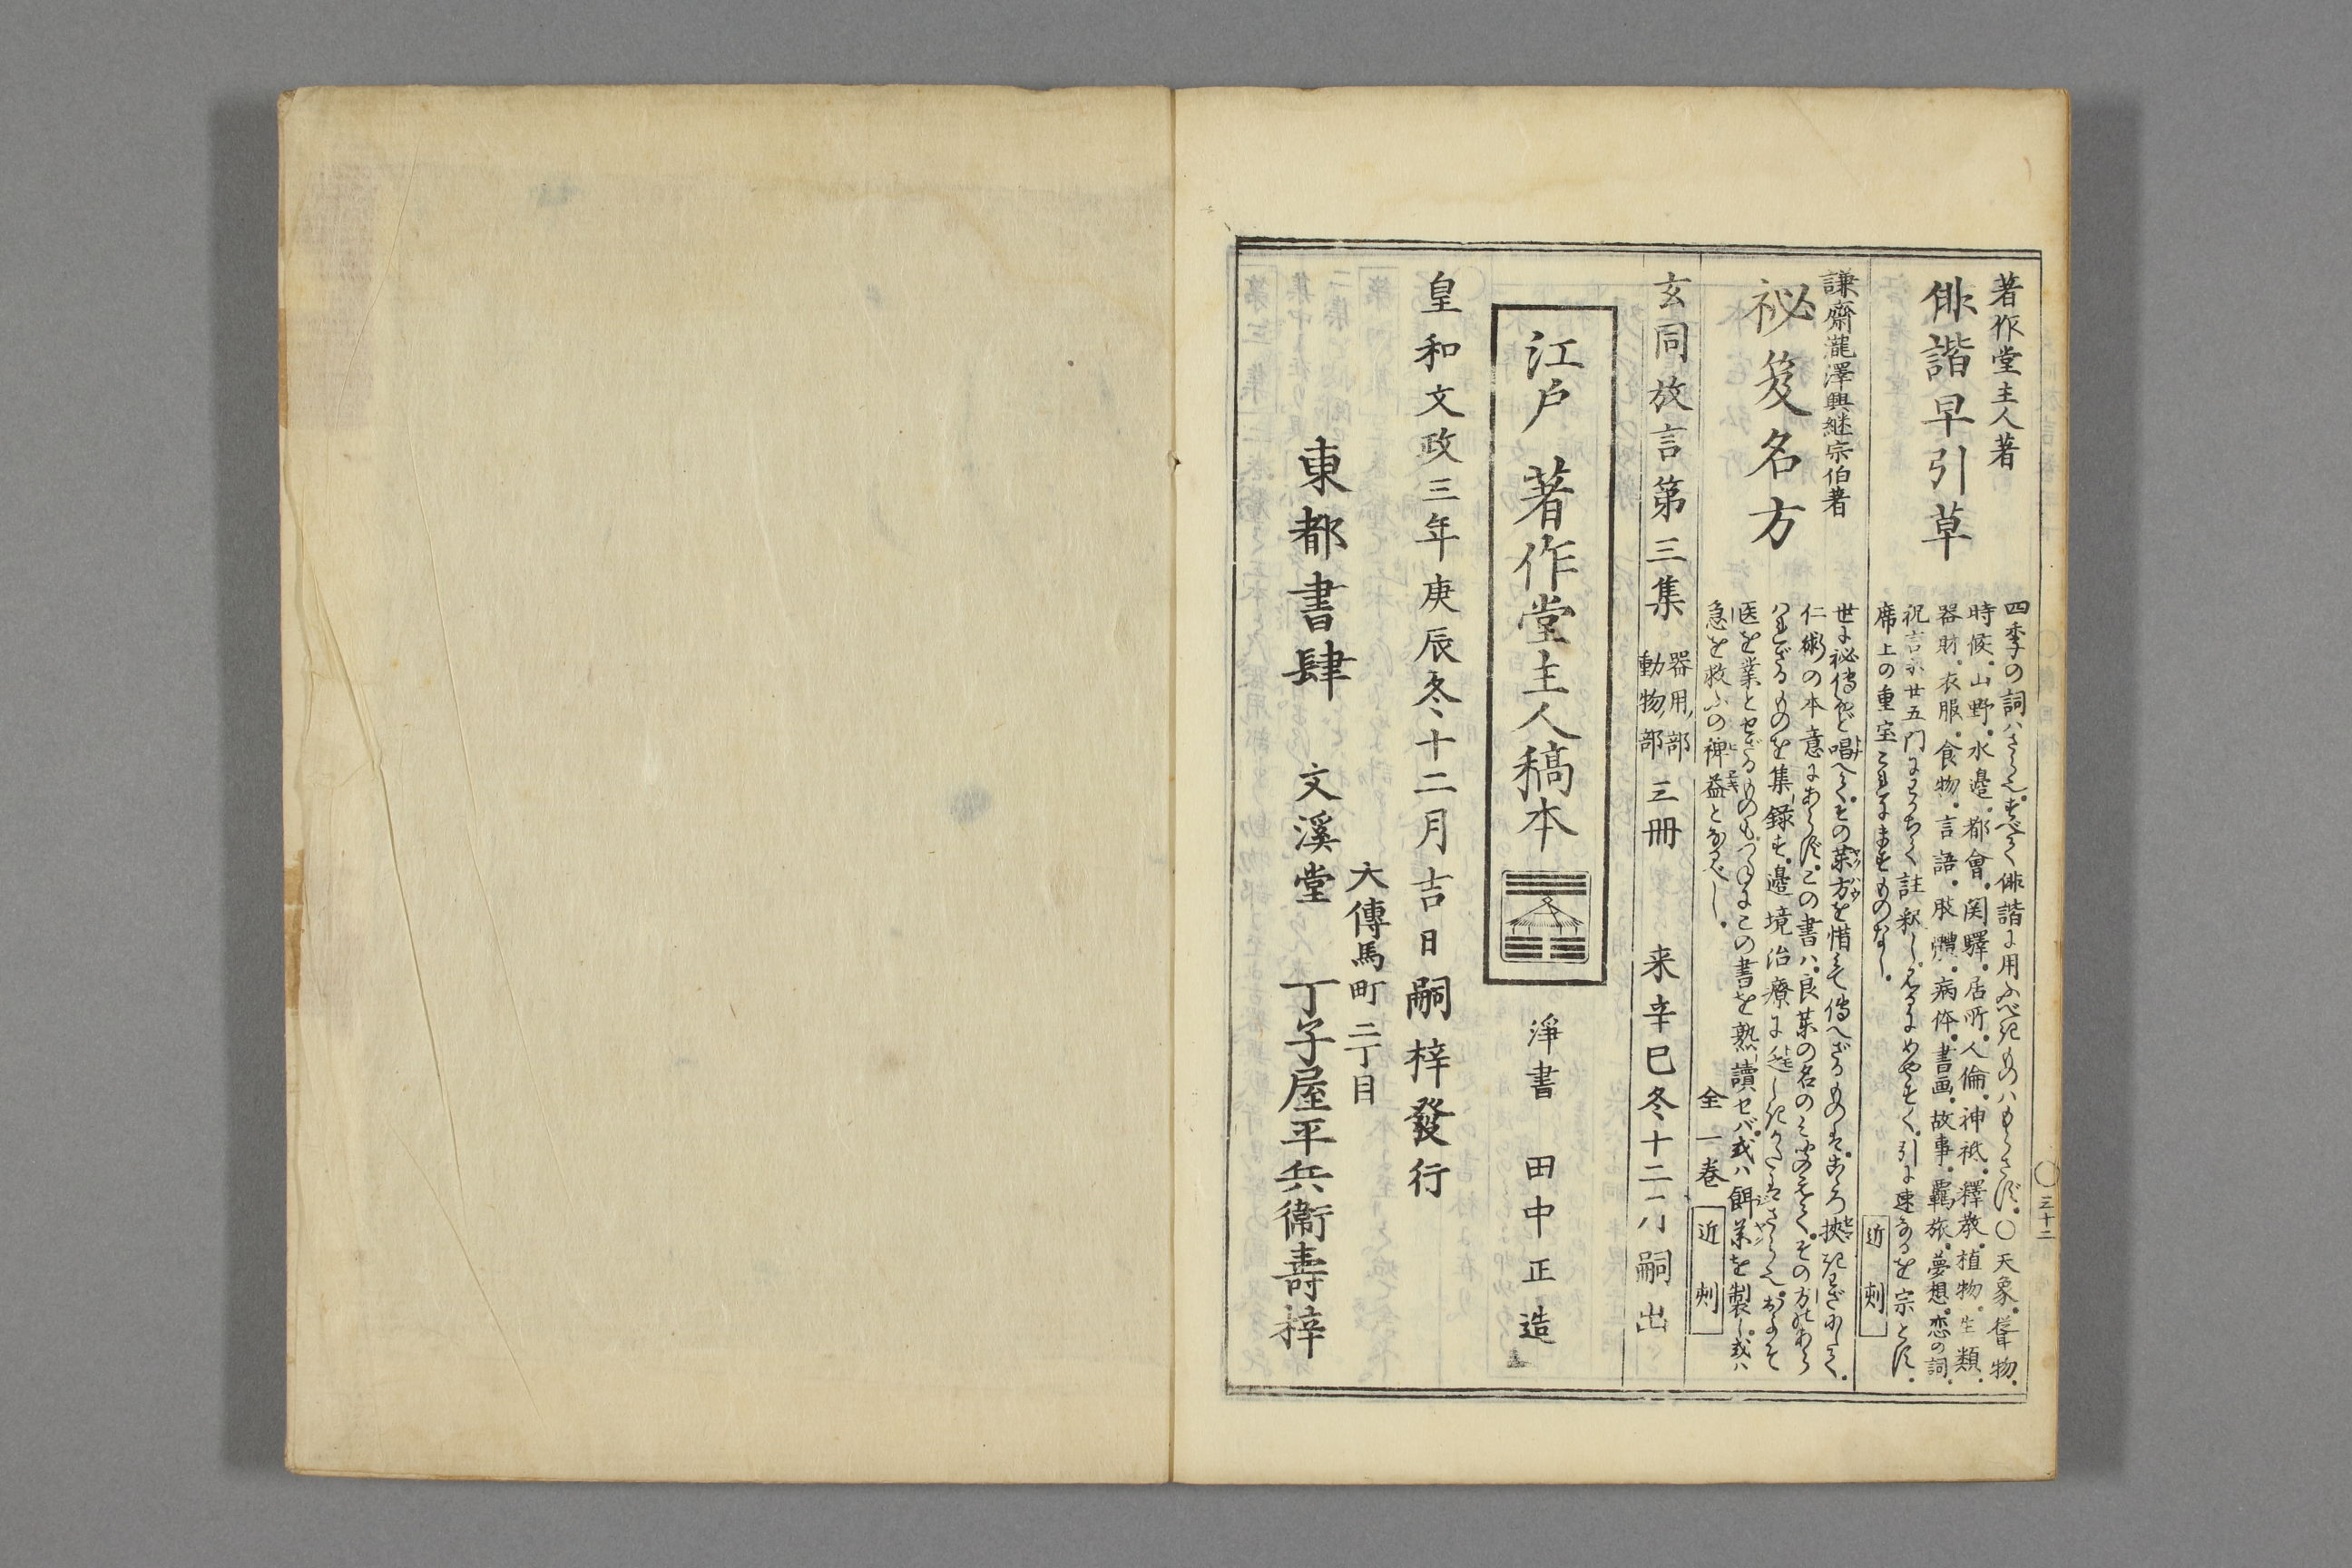 著作堂主人著
俳諧早引草
四季の詞ハさら也すべて俳諧に用ふべきものハもらさず○天象聳物
時候山野水邉都會関驛居所人倫神祇釋教植物生類
器財衣服食物言語肢體病体書画故事羇旅夢想恋の詞
祝言等廿五門にわかちて註釈し見るにめやすく引に速なるを宗とす
席上の重宝これにますものなし
近刻
謙齋瀧澤興継宗伯著
祕笈名方
世に祕傳など唱へてその薬方を惜みて傳へざるものはこゝろ狭きわざにて
仁術の本意にあらずこの書ハ良薬の名のみ
ものを集録す邉境治療に
医を業とせざるものもつねにこの書を熟讀せバ或ハ餌薬を製し或ハ
急を救ふの裨益となるべし
全一巻
近刻
玄同放言第三集
器用部
動物部
三冊
来辛巳冬十二八嗣出
江戸 著作堂主人稿本
淨書 田中正造
皇和文政三年庚辰冬十二月吉日嗣梓發行
大傳馬町二丁目
東都書肆 文溪堂 丁子屋平兵衛壽梓
○三十二